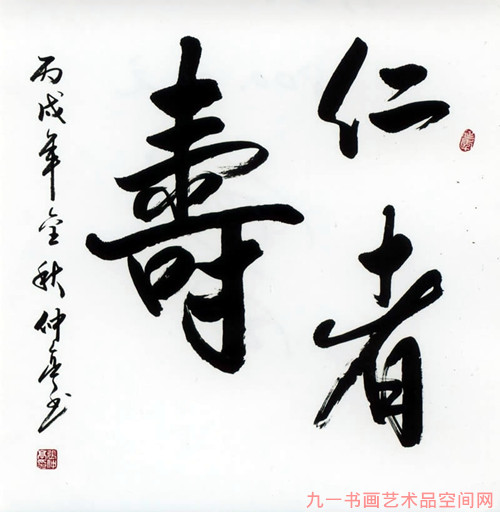 仁者
壽
丙戌年金秋仲亭书
九一书画艺术品空间网